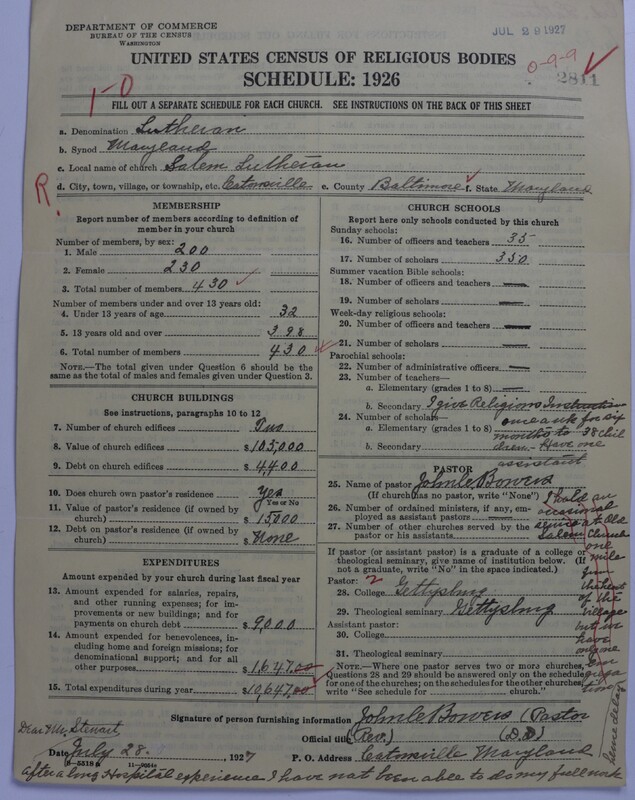 DEPARTMENT OF COMMERCE
BUREAU OF THE CENSUS
WASHINGTON
JUL 29 1927
UNITED STATES CENSUS OF RELIGIOUS BODIES
0-9-9
SCHEDULE: 1926
2811
1-0
FILL OUT A SEPARATE SCHEDULE FOR EACH CHURCH. SEE INSTRUCTIONS ON THE BACK OF THIS SHEET
a. Denomination Lutheran
b. Synod Maryland
c. Local name of church Salem Lutheran
R.
d. City, town, village, or township, etc. Catonsville e. County Baltimore f. State Maryland
MEMBERSHIP
Report number of members according to definition of member in your church
Number of members, by sex:
1. Male 200
2. Female 230
3. Total number of members 430
Number of members under and over 13 years old:
4. Under 13 years of age 32
5. 13 years old and over 398
6. Total number of members 430
NOTE.—The total given under Question 6 should be
the same as the total of males and females given under Question 3.
CHURCH BUILDINGS
See instructions, paragraphs 10 to 12
7. Number of church edifices Two
8. Value of church edifices $105,000
9. Debt on church edifices $4400
10. Does church own pastor's residence? Yes
Yes or No
11. Value of pastor's residence (if owned by
church) $15000
12. Debt on pastor's residence (if owned by
church) $None
EXPENDITURES
Amount expended by your church during last fiscal year
13. Amount expended for salaries, repairs,
and other running expenses; for im-
provements or new buildings; and for
payments on church debt $9,000
14. Amount expended for benevolences,
including home and foreign missions; for
denominational support; and for all
other purposes $1,647.00
15. Total expenditures during year $10,647.00
CHURCH SCHOOLS
Report here only schools conducted by this church
Sunday schools:
16. Number of officers and teachers 35
17. Number of scholars 350
Summer vacation Bible schools:
18. Number of officers and teachers —
19. Number of scholars —
Week-day religious schools:
20. Number of officers and teachers —
21. Number of scholars —
Parochial schools:
22. Number of administrative officers —
23. Number of teachers—
a. Elementary (grades 1 to 8) —
b. Secondary I give Religious Instruction
24. Number of scholars—
a. Elementary (grades 1 to 8) once a wk for six
months to 38 chil
b. Secondary dren - Have one
assistant
PASTOR
25. Name of pastor John C Bowers
(If church has no pastor, write "None")
26. Number of ordained ministers, if any, em-
ployed as assistant pastors —
27. Number of other churches served by the
pastor or his assistants
I hold an
occasional
service at Old
Salem Church
one
mile
from
the
of the
village
but we
have
no
con
grega
tion
If pastor (or assistant pastor) is a graduate of a college or
theological seminary, give name of institution below. (If
not a graduate, write "No" in the space indicated.)
Pastor: 2
28. College Gettysburg
29. Theological seminary Gettysburg
Assistant pastor:
30. College
31. Theological seminary
NOTE.—Where one pastor serves two or more churches,
Questions 28 and 29 should be answered only on the schedule
for one of the churches; on the schedules for the other churches,
write "See schedule for church."
Signature of person furnishing information John C Bowers (Pastor
Dear Mr. Stewart
Official title (Rev.) (D.D)
Date July 28, 1927 P. O. Address Catonsville Maryland
8-5518 a 11-9054
After a long Hospital experience I have not been able to do my full work
hence delay